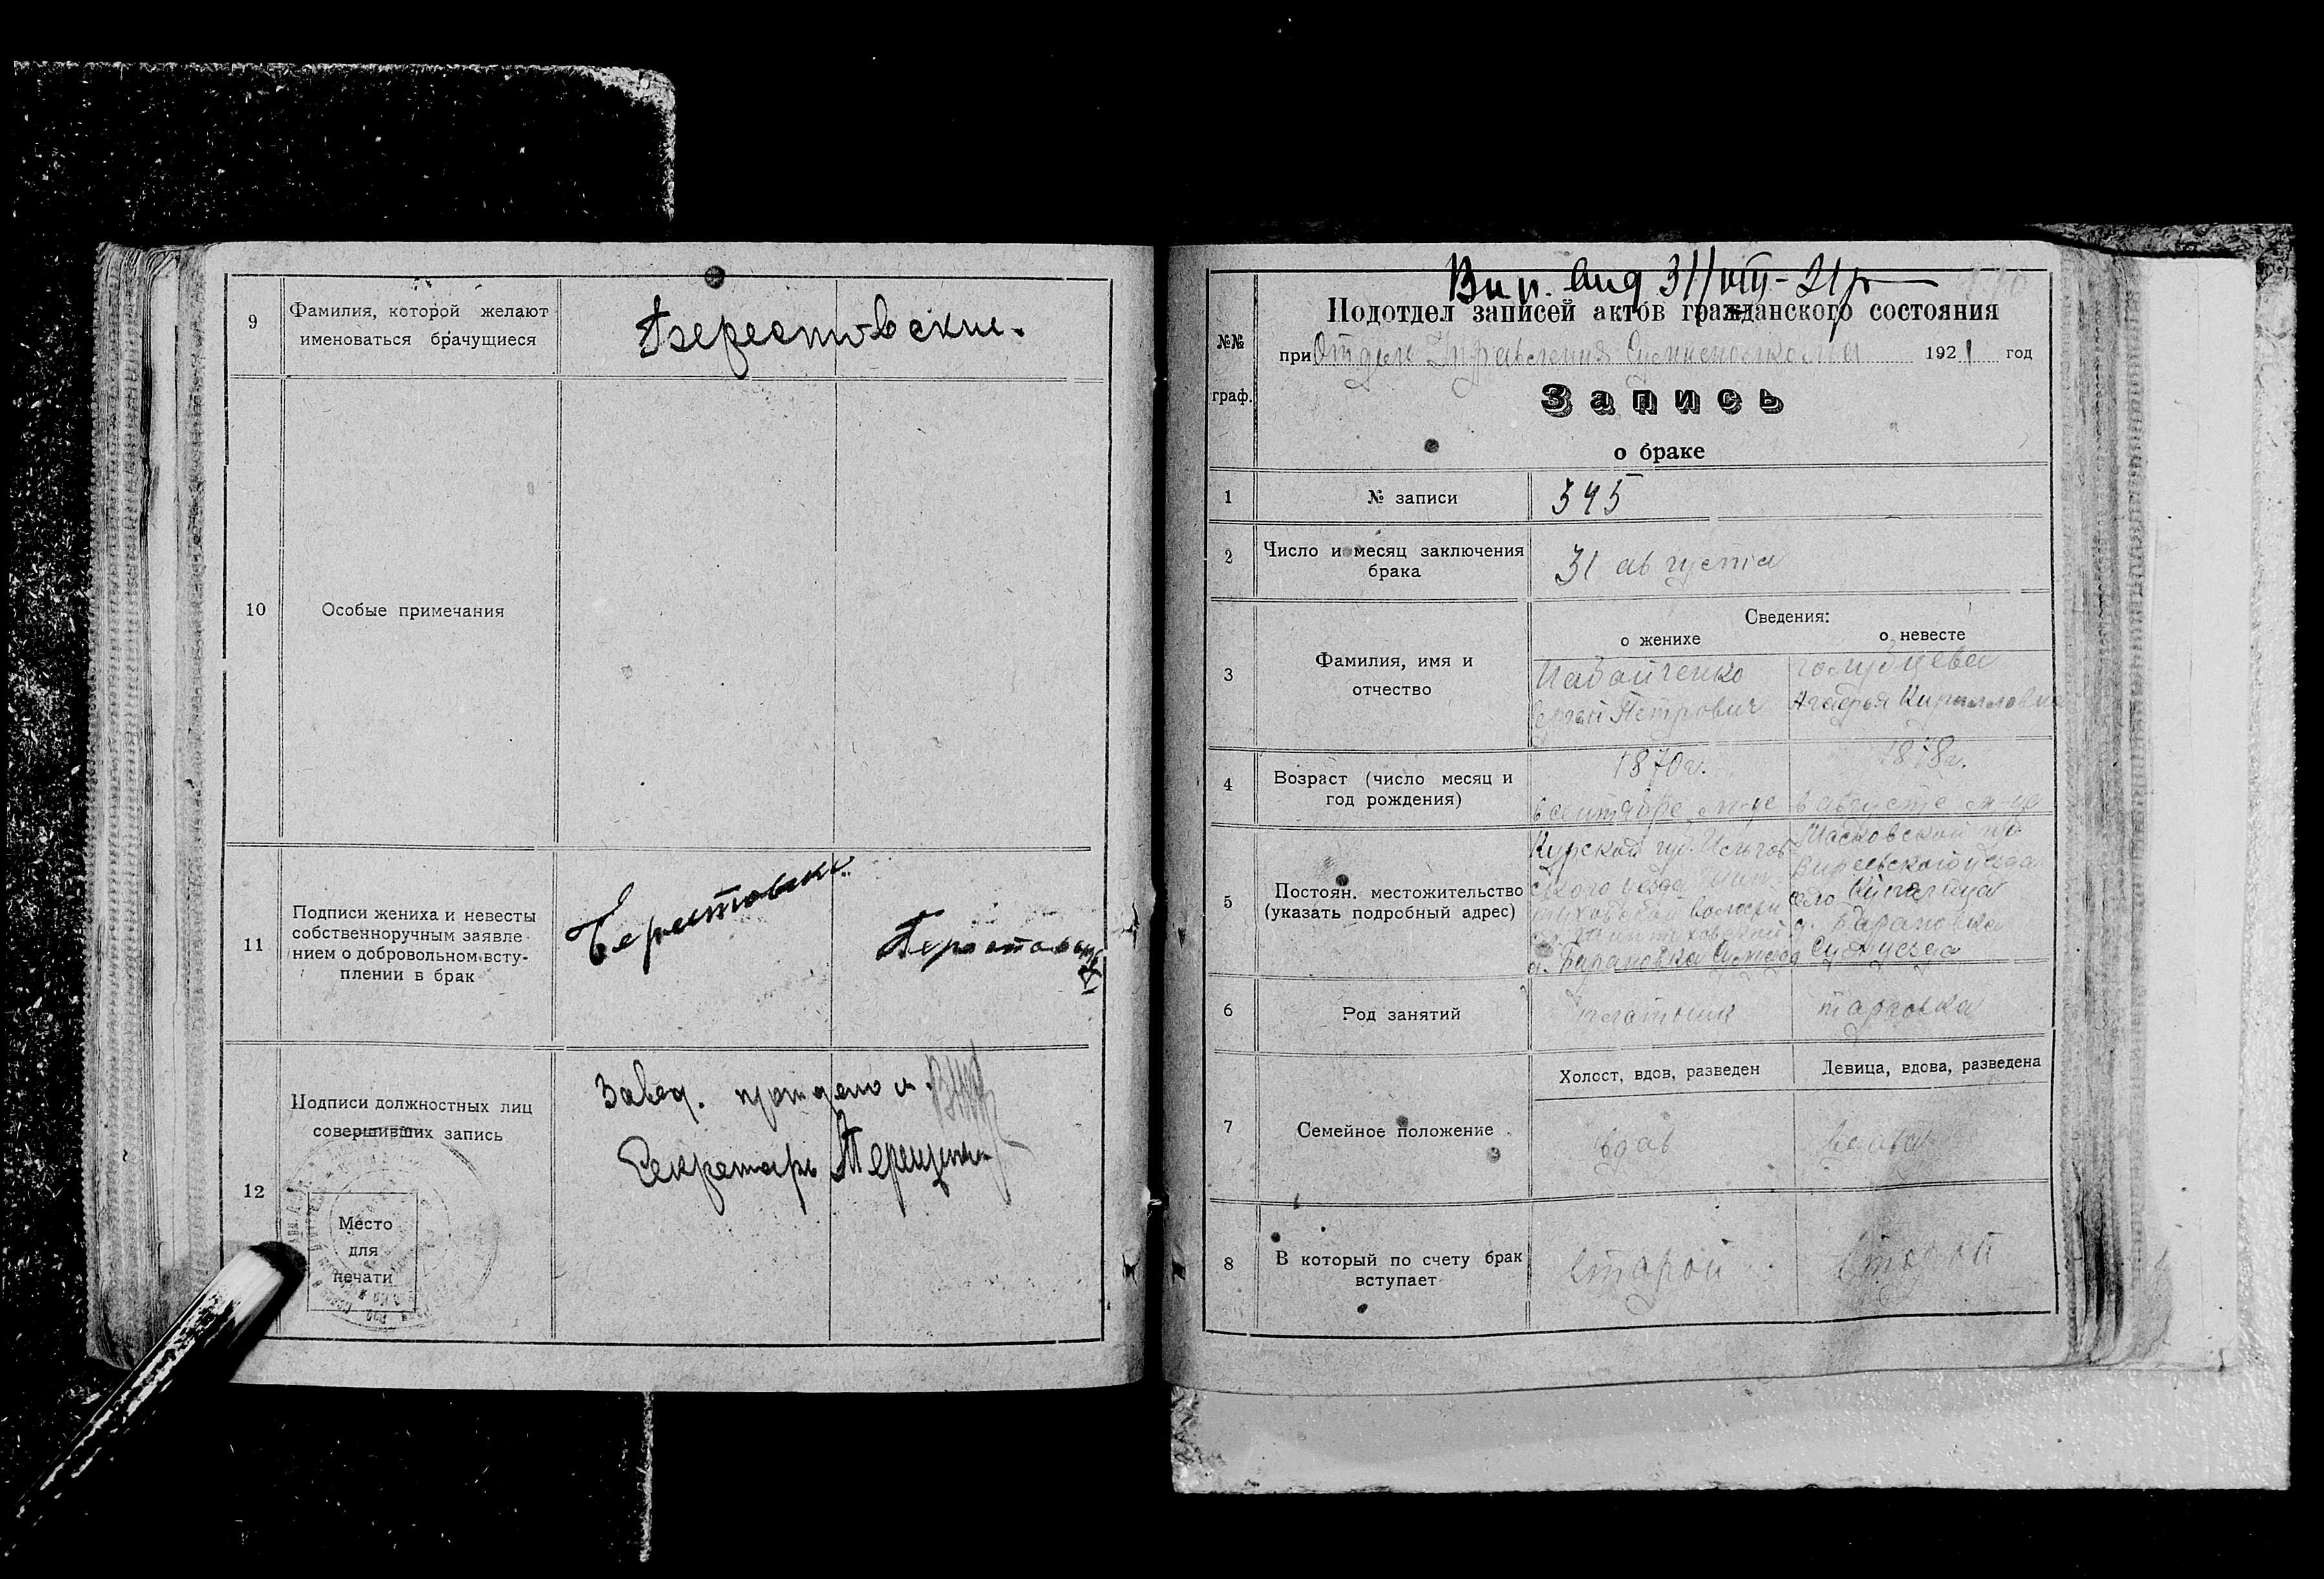 9
Фамилия, которой желают
именоваться брачущиеся
Берестовские.
10
Особые примечания
11
Подписи жениха и невесты
собственноручным заявле-
нием о добровольном всту-
плении в брак
12
Подписи должностных лиц
совершивших запись
Завед.
Секретарь Терещенко
Место
для
печати
Вип. 31/VIII-21р
№№
граф.
Подотдел записей актов гражданского состояния
при Отделе Управления 1921 год
Запись
о браке
1
№ записи
345
2
Число и месяц заключения
брака
31 августа
Сведения:
о женихе
о невесте
3
Фамилия, имя и
отчество
Сергей Петрович
Голубцева
Агафья Кирилловна
4
Возраст (число месяц и
год рождения)
1870г.
в сентябре м-це
1878г.
в августе м-це
5
Постоян. местожительство
(указать подробный адрес)
Курской губ. Льгов
ского уезда
волости
д. Барановка
Московской губ
уезда
село
д. Барановка
6
Род занятий
плотник
торговка
7
Семейное положение
Холост, вдов, разведен
Девица, вдова, разведена
вдов
вдова
8
В который по счету брак
вступает
второй
второй